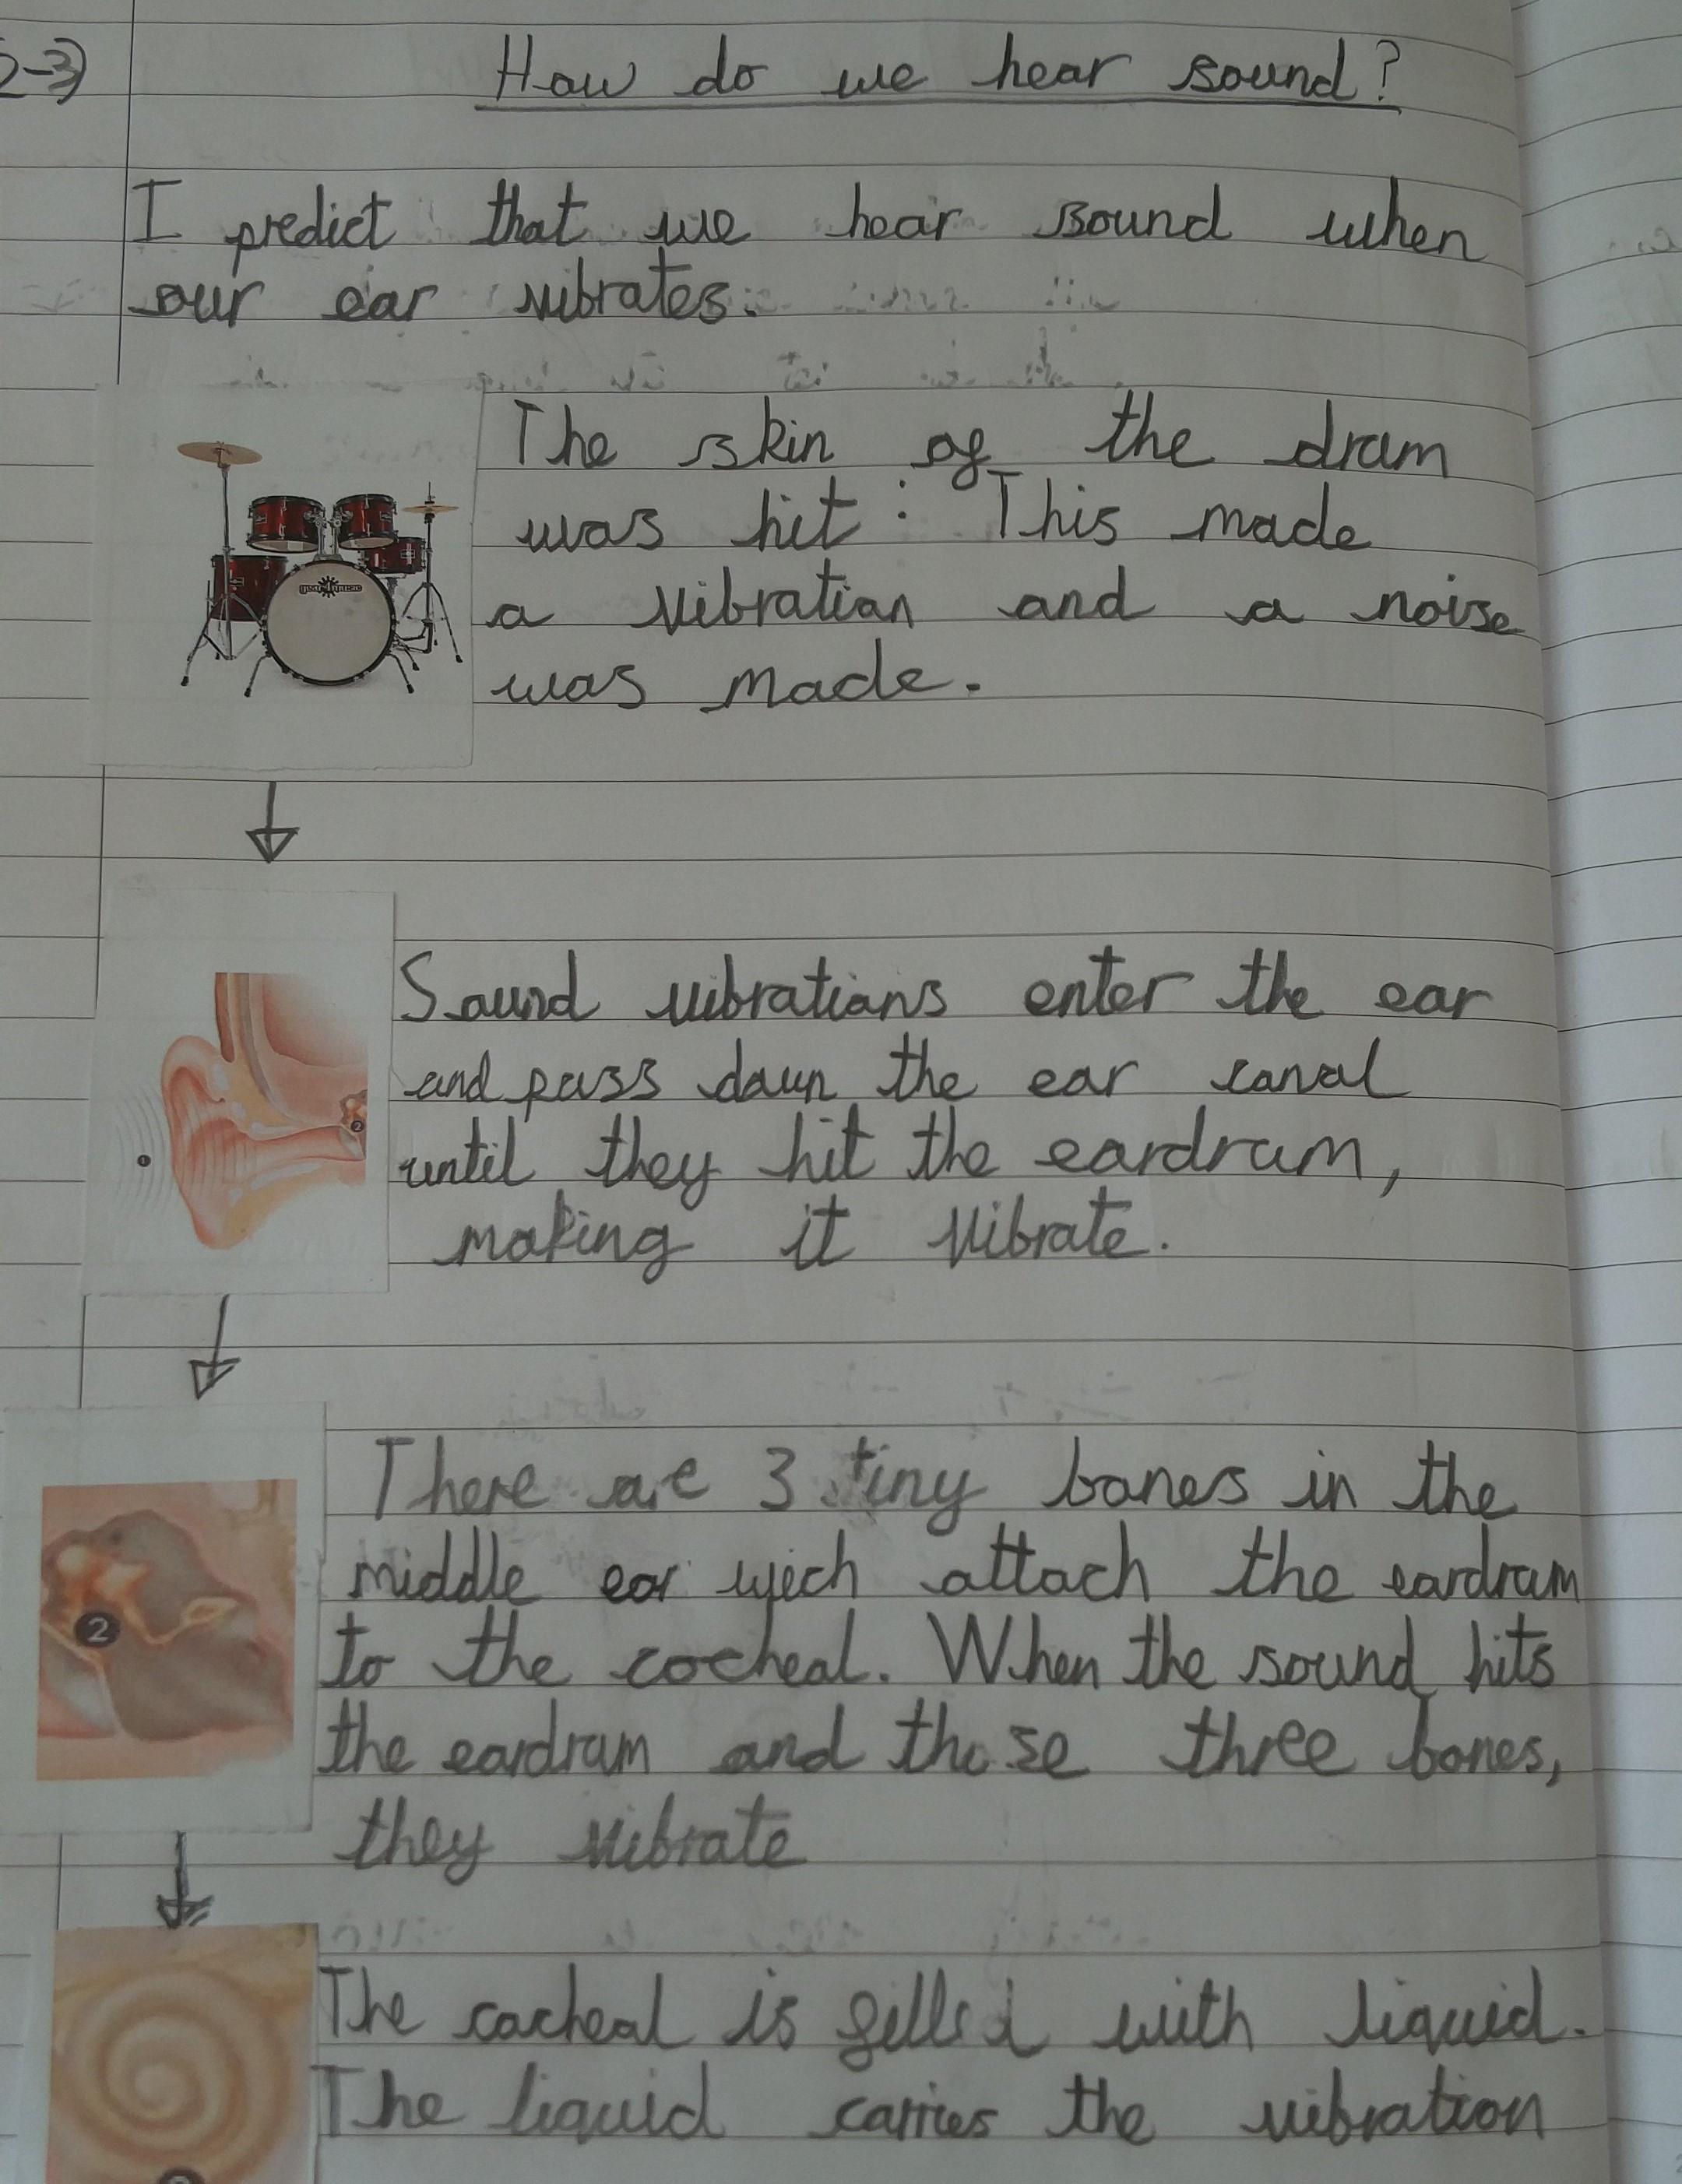 2-3)
How do we hear sound?
I predict that we hear sound when
our ear vibrates.
The skin of the drum
was hit. This made
a vibration and a noise
was made.
Sound vibrations enter the ear
and pass down the ear canal
until they hit the eardrum,
making it vibrate.
There are 3 tiny bones in the
middle ear wich attach the eardrum
to the cocheal. When the sound hits
the eardrum and those three bones,
they vibrate
2
The cocheal is filled with liquid.
The liquid carries the vibration